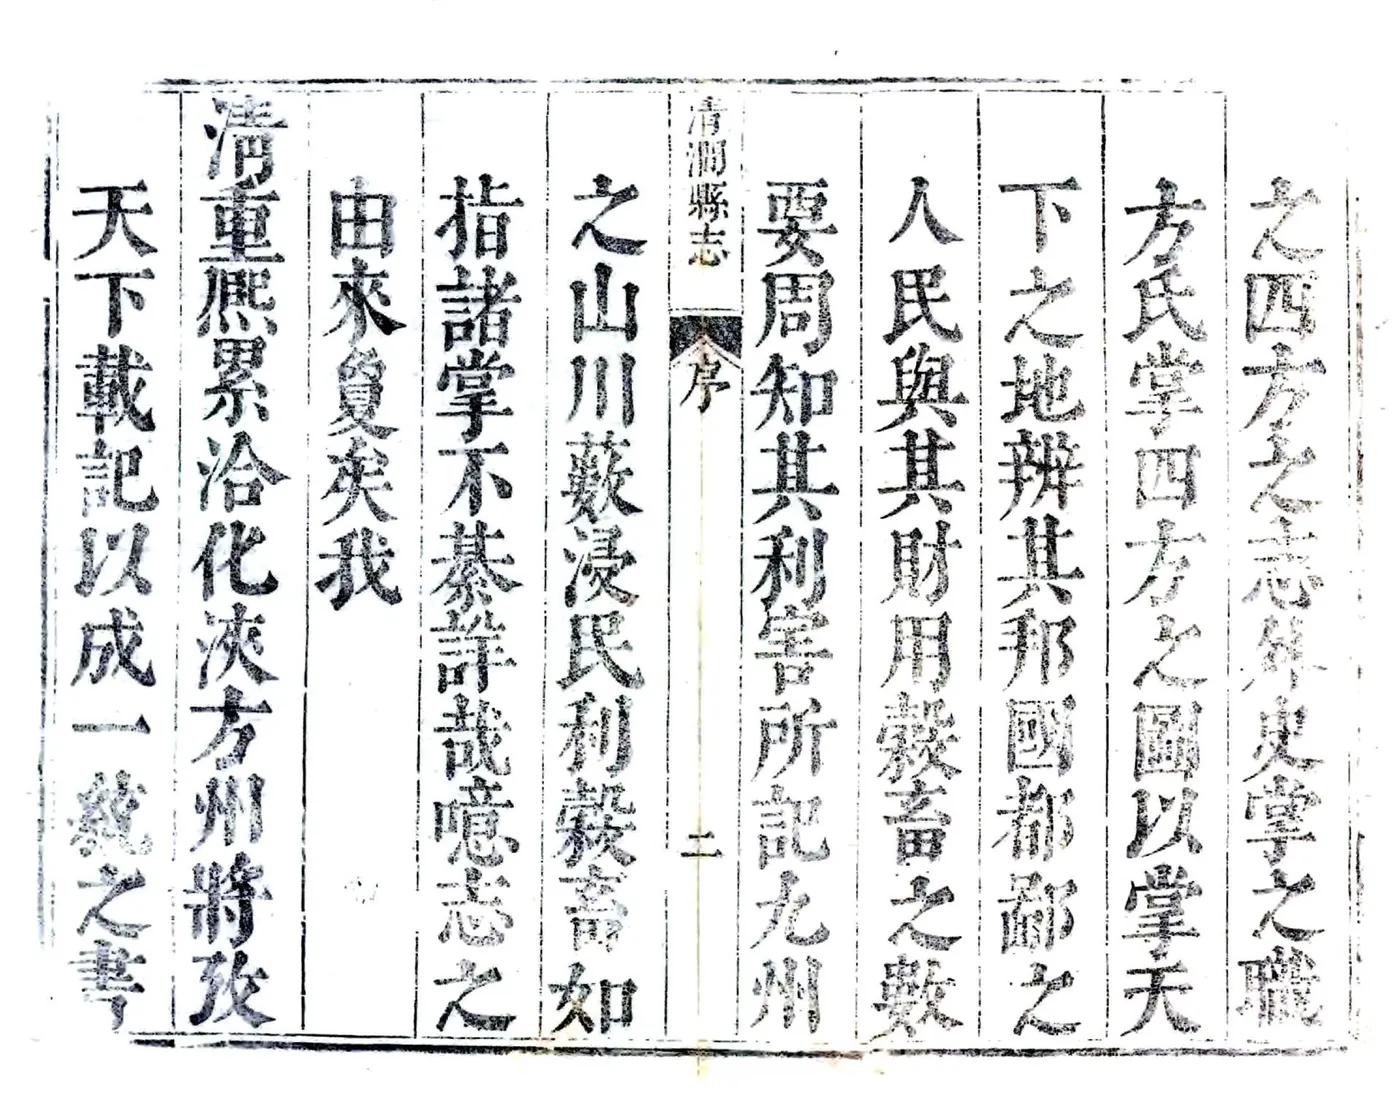 之四方之志外史掌之職
方氏掌四方之圖以掌天
下之地辨其邦國都鄙之
人民與其財用穀畜之數
要周知其利害所記九州
清澗縣志
序
二
之山川藪浸民利穀畜如
指諸掌不綦詳哉噫志之
由來夐矣我
清重熈累洽化浹方州將攷
天下載記以成一統之書